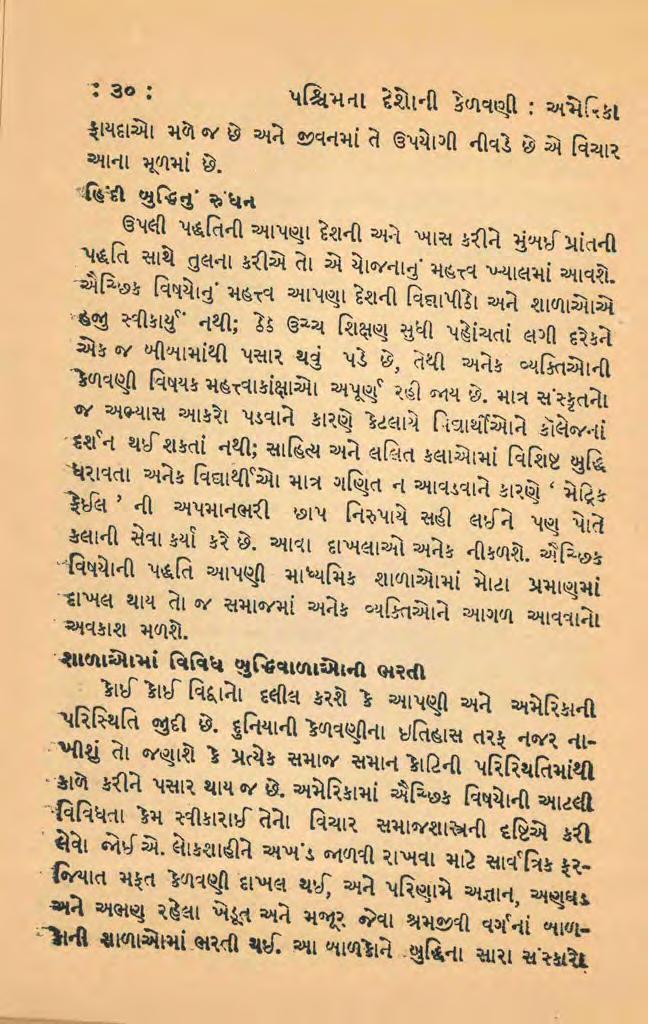 : ૩૦ : પશ્ચિમના દેશોની કેળવણી : અમેરિકા
ફાયદાઓ મળે જ છે અને જીવનમાં તે ઉપયોગી નીવડે છે એ વિચાર
આના મૂળમાં છે.
હિંદી બુદ્ધિનું રુંધન
ઉપલી પદ્ધતિની આપણા દેશની અને ખાસ કરીને મુંબઈ પ્રાંતની
પદ્ધતિ સાથે તુલના કરીએ તો એ યોજનાનું મહત્ત્વ ખ્યાલમાં આવશે.
ઐચ્છિક વિષયોનું મહત્ત્વ આપણા દેશની વિદ્યાપીઠો અને શાળાઓએ
હજુ સ્વીકાર્યું નથી; ઠેઠ ઉચ્ચ શિક્ષણ સુધી પહોંચતાં લગી દરેકને
એક જ બીબામાંથી પસાર થવું પડે છે, તેથી અનેક વ્યક્તિઓની
કેળવણી વિષયક મહત્ત્વાકાંક્ષાઓ અપૂર્ણ રહી જાય છે. માત્ર સંસ્કૃતનો
જ અભ્યાસ આકરો પડવાને કારણે કેટલાયે વિદ્યાર્થીઓને કૉલેજનાં
દર્શન થઈ શકતાં નથી; સાહિત્ય અને લલિત કલાઓમાં વિશિષ્ટ બુદ્ધિ
ધરાવતા અનેક વિદ્યાર્થીઓ માત્ર ગણિત ન આવડવાને કારણે ‘ મેટ્રિક
ફેઈલ ’ ની અપમાનભરી છાપ નિરુપાયે સહી લઈને પણ પોતે
કલાની સેવા કર્યા કરે છે. આવા દાખલાઓ અનેક નીકળશે. ઐચ્છિક
વિષયોની પદ્ધતિ આપણી માધ્યમિક શાળાઓમાં મોટા પ્રમાણમાં
દાખલ થાય તો જ સમાજમાં અનેક વ્યક્તિઓને આગળ આવવાનો
અવકાશ મળશે.
શાળાઓમાં વિવિધ બુદ્ધિવાળાઓની ભરતી
કોઈ કોઈ વિદ્વાનો દલીલ કરશે કે આપણી અને અમેરિકાની
પરિસ્થિતિ જુદી છે. દુનિયાની કેળવણીના ઇતિહાસ તરફ નજર ના-
ખીશું તો જણાશે કે પ્રત્યેક સમાજ સમાન કોટિની પરિસ્થિતિમાંથી
કાળે કરીને પસાર થાય જ છે. અમેરિકામાં ઐચ્છિક વિષયોની આટલી
વિવિધતા કેમ સ્વીકારાઈ તેનો વિચાર સમાજશાસ્ત્રની દૃષ્ટિએ કરી
લેવો જોઈએ. લોકશાહીને અખંડ જાળવી રાખવા માટે સાર્વત્રિક ફર-
જિયાત મફત કેળવણી દાખલ થઈ, અને પરિણામે અજ્ઞાન, અણઘડ
અને અભણ રહેલા ખેડૂત અને મજૂર જેવા શ્રમજીવી વર્ગનાં બાળ-
કોની શાળાઓમાં ભરતી થઈ. આ બાળકોને બુદ્ધિના સારા સંસ્કારો